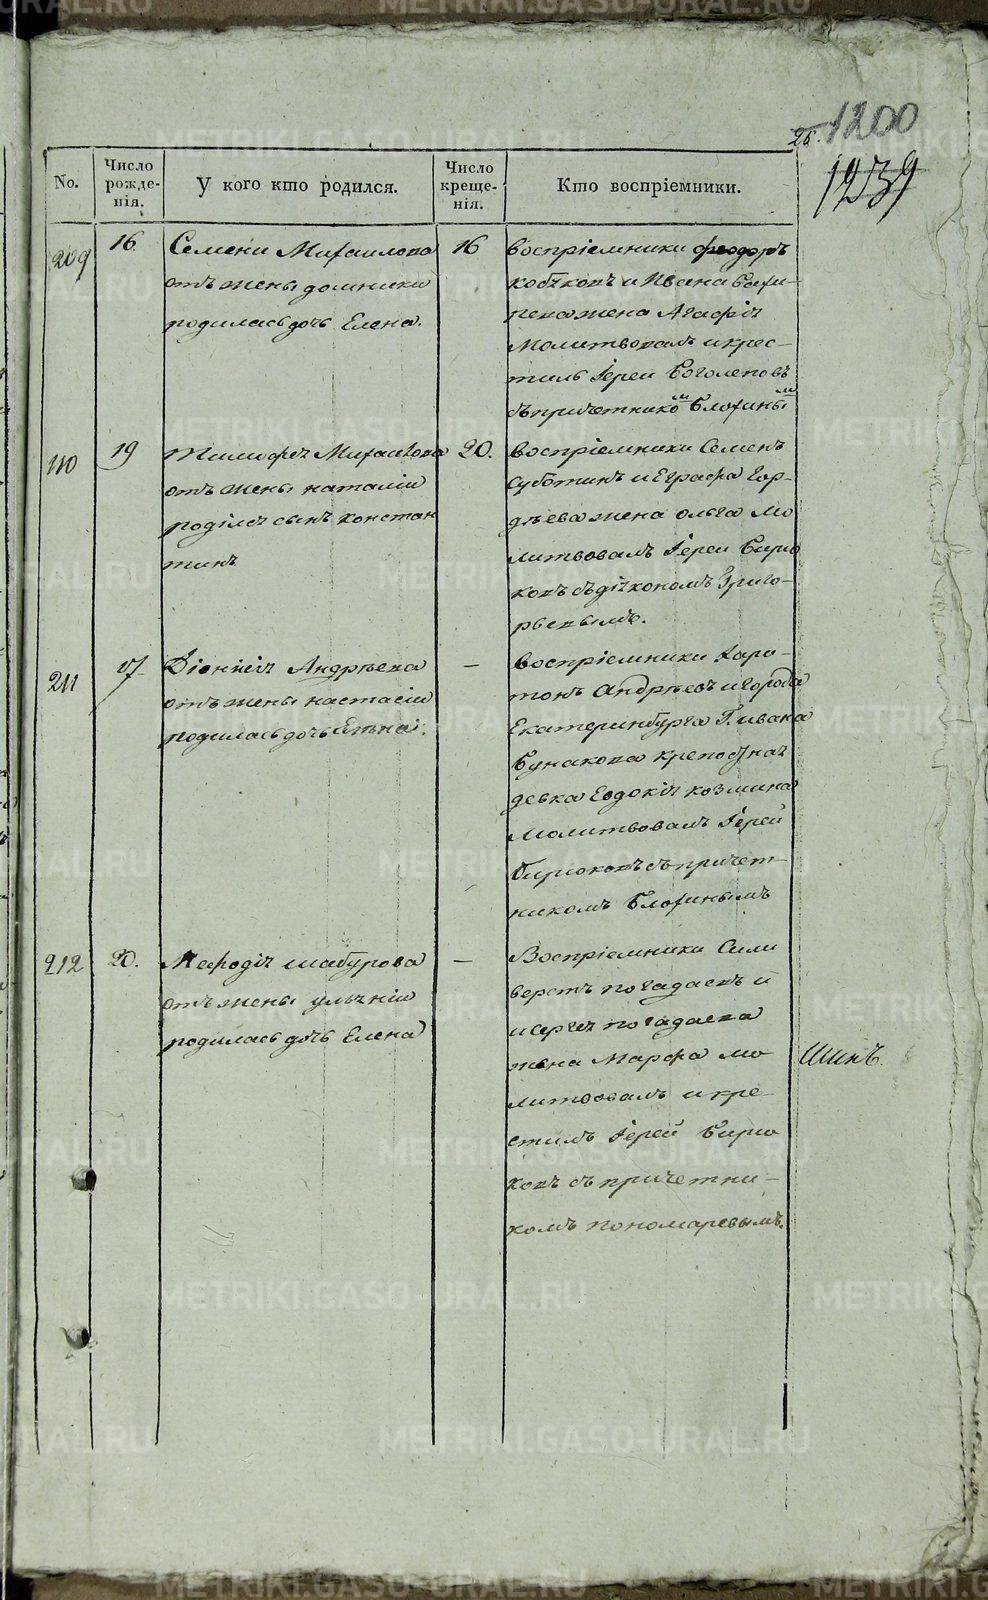 26. 1200
1239
No.
Число рожде-нія.
У кого кто родился.
Число креще-нія.
Кто воспріемники.
209
16
Семени Михаилова
отъ жены домники
родилась дочь Елена.
16
воспріемники феодоръ
кобяковъ и Ивана
жена Агафія
Молитвовалъ и крес-
тилъ Іереи Боголеповъ
съ причетникомъ Блохинымъ
110
19
Тимифея Михаилова
отъ жены наталіи
роділся сынъ констан
тинъ
20.
воспріемники Семенъ
Суботинъ и Еграфа Гор-
дѣева жена ольга Мо
литвовалъ Іереи Бирю
ковъ съ діякономъ Григо-
рьевымъ.
211
17
Діонисія Андрѣева
отъ жены настасіи
родилась дочь Елена.
—
воспріемники Хари-
тонъ Андрѣевъ и города
Екатеринбурга Г. ивана
Бунакова крепостная
девка Евдокія козмина
Молитвовалъ Іерей
бирюковъ съ причет-
никомъ Блохинымъ
212
20.
Мефодія шабурова
отъ жены ульяніи
родилась дочь Елена
—
Воспріемники Сили
верстъ погадаевъ и
и сергея погадаева
жена Марфа мо
литвовалъ и кре-
стилъ Іерей Бирю
ковъ съ причетни-
комъ пономаревымъ.
Шинъ.
METRIKI.GASO-URAL.RU